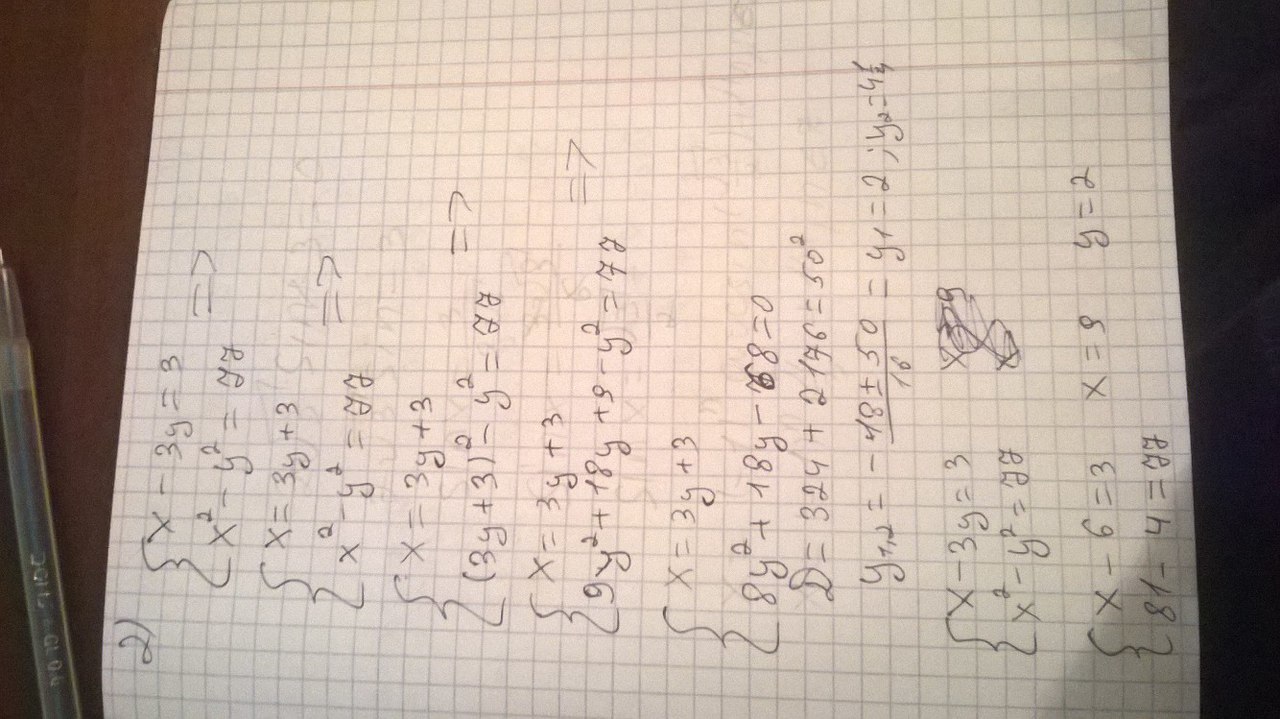 2)
{ x - 3y = 3
{ x² - y² = 77 =>
{ x = 3y + 3
{ x² - y² = 77 =>
{ x = 3y + 3
{ (3y + 3)² - y² = 77 =>
{ x = 3y + 3
{ 9y² + 18y + 9 - y² = 77 =>
{ x = 3y + 3
{ 8y² + 18y - 68 = 0
D = 324 + 2176 = 50²
y₁,₂ = - 18 ± 50 / 16 = y₁ = 2 ; y₂ = 4
{ x - 3y = 3
{ x² - y² = 77
{ x - 6 = 3 x = 9 y = 2
{ 81 - 4 = 77